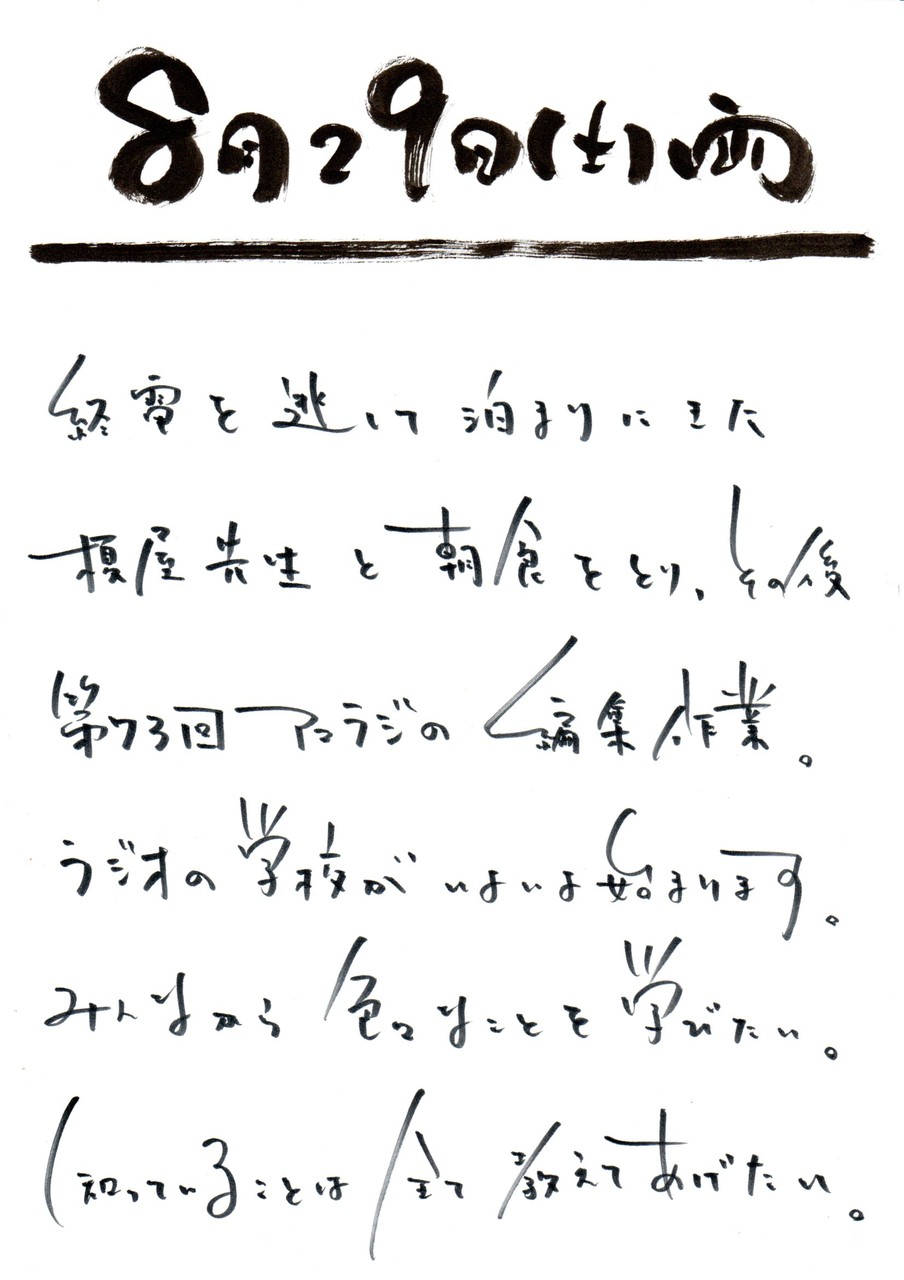 8月29日(土)雨
終電を逃して泊まりにきた
榎屋先生と朝食をとり、その後
第73回アコラジの編集作業。
ラジオの学校がいよいよ始まります。
みんなから色々なことを学びたい。
知っていることは全て教えてあげたい。